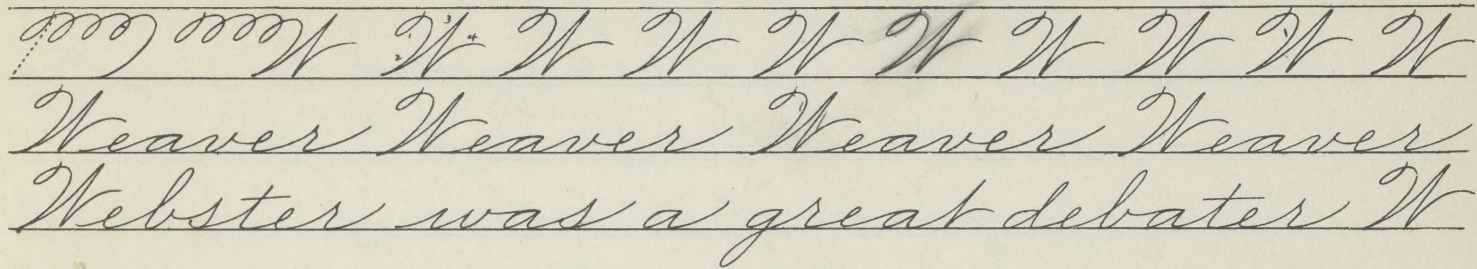 W W W W W W W W W W
Weaver Weaver Weaver Weaver
Webster was a great debater W